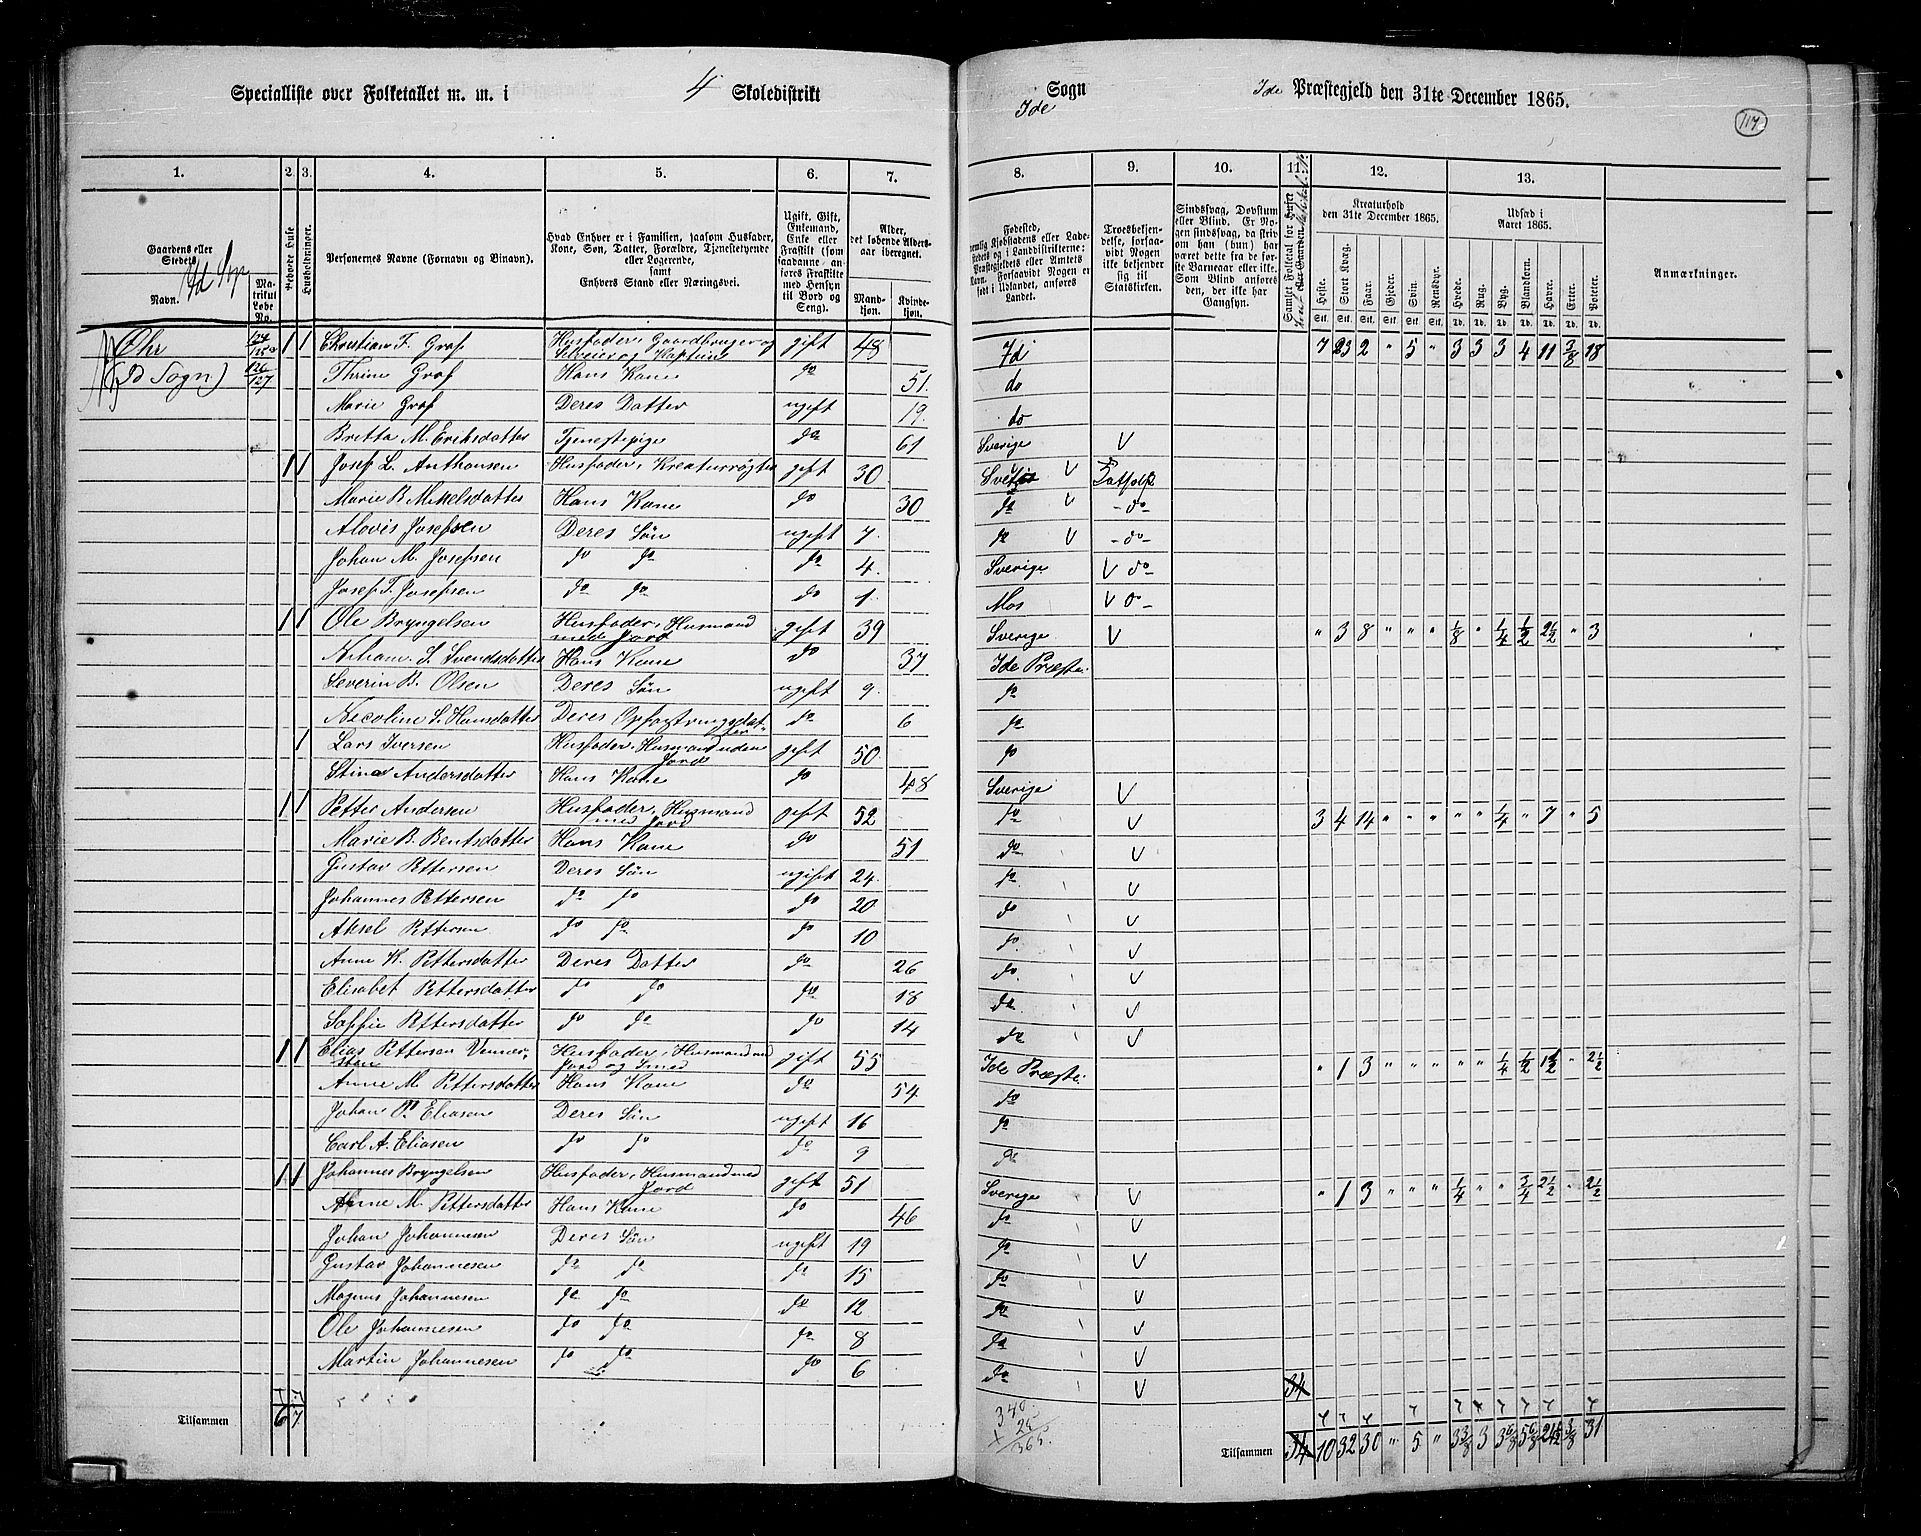 Specialliste over Folketallet m. m. i 4 Skoledistrikt
Sogn Ide Præstegjeld den 31te December 1865.
Ide
117
1. 2. 3. 4. 5. 6. 7.
8. 9. 10. 11. 12. 13.
Gaardens eller Stedets Navn.
Matrikul Løbe No.
Beboede Huse
Husholdninger.
Personernes Navne (Fornavn og Binavn).
Hvad Enhver er i Familien, saasom Husfader, Kone, Søn, Datter, Forældre, Tjenestetyende eller Logerende, samt Enhvers Stand eller Næringsvei.
Ugift, Gift, Enkemand, Enke eller Fraskilt (som saadanne anføres Fraskilte med Hensyn til Bord og Seng).
Alder, det løbende Aldersaar iberegnet.
Mandkjøn. Kvindekjøn.
Troesbekjendelse, forsaavidt Nogen ikke bekjender sig til Statskirken.
Kreaturhold den 31te December 1865.
Udsæd i Aaret 1865.
Heste. Stort Kvæg. Faar. Gjeder. Svin. Rensdyr. Hvede. Rug. Byg. Blandkorn. Havre. Erter. Poteter.
Anmærkninger.
Øhr 124 1 1 Christian F. Graf Husfader, Gaardbruger og gift 48 Ide 7 23 2 " 5 " 3 3 3 4 11 3/8 18
(Id Sogn) 126 127 Thrine Graf Hans Kone do 51 do
Marie Graf Deres Datter ugift 19 do
Britta M. Eriksdatter Tjenestepige do 61 Sverige V
1 1 Josef L. Anthonsen Husfader, Kreaturrøgter gift 30 V
Marie B. Mikelsdatter Hans Kone do 30 do V - do
Alovis Josefsen Deres Søn ugift 7 do V - do -
Johan M. Josefsen do do do 4 Sverige V do -
Josef T. Josefsen do do do 1 Mos V
1 1 Ole Bryngelsen Husfader, Husmand med Jord gift 39 Sverige V " 3 8 " " " 1/8 " 1/4 1/2 2 1/2 " 3
S. Svendsdatter Hans Kone do 37 Ide Præste.
Severin B. Olsen Deres Søn ugift 9 do
Nicoline S. Hansdatter Deres Opfostringsdatter do 6 do
1 Lars Iversen Husfader, Husmand uden Jord gift 50 do
Stina Andersdatter Hans Kone do 48 Sverige V
1 1 Petter Andersen Husfader, Husmand med Jord gift 52 do V 3 4 14 " " " " " 1/4 " 7 " 5
Marie B. Bentsdatter Hans Kone do 51 do V
Gustav Pettersen Deres Søn ugift 24 do V
Johannes Pettersen do do do 20 do V
Aksel Pettersen do do do 10 do V
Anne K. Pettersdatter Deres Datter do 26 do V
Elisabet Pettersdatter do do do 18 do V
Soffie Pettersdatter do do do 14 do V
1 1 Elias Pettersen Husfader, Husmand med Jord og Smed gift 55 Ide Præste. " 1 3 " " " " " 1/4 1/2 1 1/2 " 2 1/2
Anne M. Pettersdatter Hans Kone do 54 do
Johan P. Eliasen Deres Søn ugift 16 do
Carl A. Eliasen do do do 9 do
1 1 Johannes Bryngelsen Husfader, Husmand med Jord gift 51 Sverige V " 1 3 " " " 1/4 " " 3/4 2 1/2 " 2 1/2
Anne M. Pettersdatter Hans Kone do 46 do V
Johan Johannesen Deres Søn ugift 19 do V
Gustav Johannesen do do do 15 do V
Magnus Johannesen do do do 12 do V
Ole Johannesen do do do 8 do V
Martin Johannesen do do do 6 do V 34
Tilsammen 6 7
340
25
365.
Tilsammen 34 10 32 30 " 5 " 3 3/8 3 31